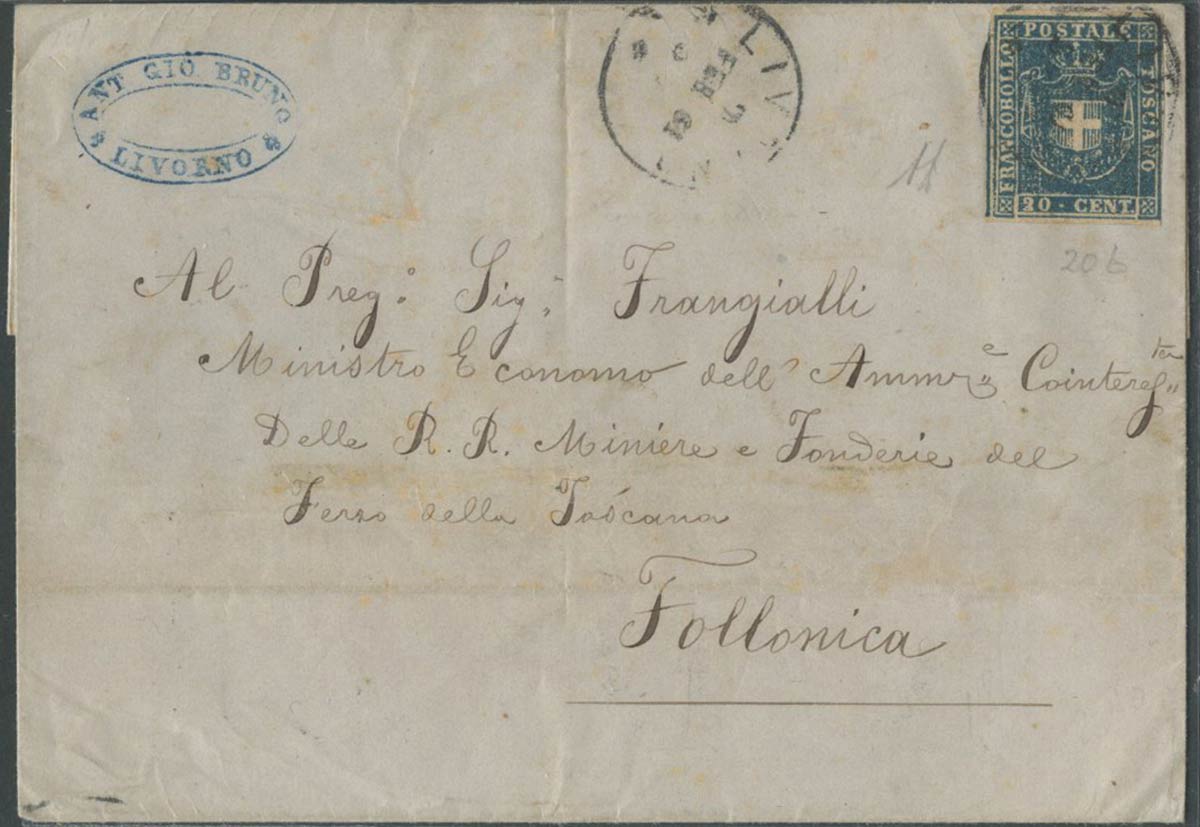 ANT GIO BRUNO
LIVORNO
LIV
19
POSTALE
FRANCOBOLLO
TOSCANO
20 - CENT.
20 b
Al Preg.o Sig.
Frangialli
Ministro Economo dell' Amm.e Cointeres.ta
Delle R. R. Miniere e Fonderie del
Ferro della Toscana
Follonica